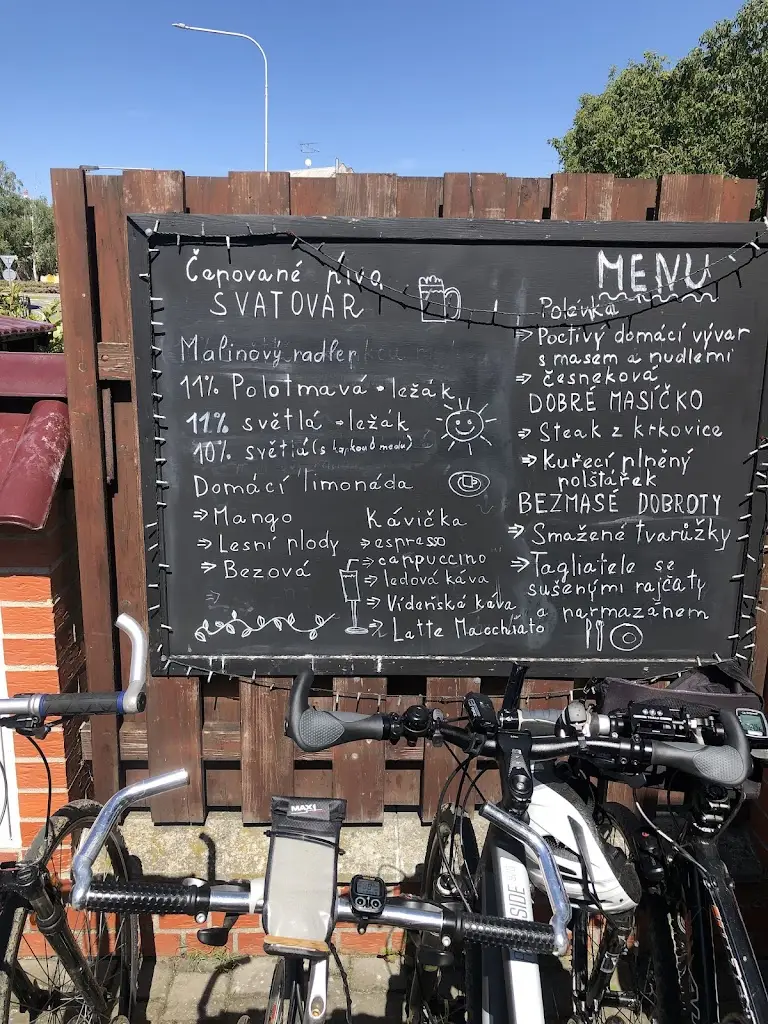 Čepované piva
SVATOVAR
Malinový radler
11% Polotmavá - ležák
11% světlá - ležák
10% světlá (s kapkou medu)
Domácí limonáda
⇒ Mango
⇒ Lesní plody
⇒ Bezová
⇒
Kávička
⇒ espresso
⇒ cappuccino
⇒ ledová káva
⇒ Vídeňská káva
⇒ Latte Macchiato
MENU
Polévka
⇒ Poctivý domácí vývar
s masem a nudlemi
⇒ česneková
DOBRÉ MASÍČKO
⇒ Steak z krkovice
⇒ Kuřecí plněný
polštářek
BEZMASÉ DOBROTY
⇒ Smažené tvarůžky
⇒ Tagliatele se
sušenými rajčaty
a parmazánem
MAX1
SIDE